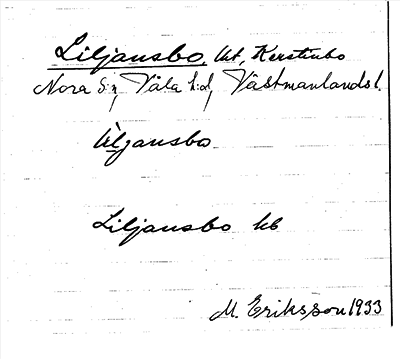 Liljansbo, Ut, Kerstinbo
Nora S:n, Våla h:d, Västmanlands l.
Liljansbo
Liljansbo
M. Eriksson 1933